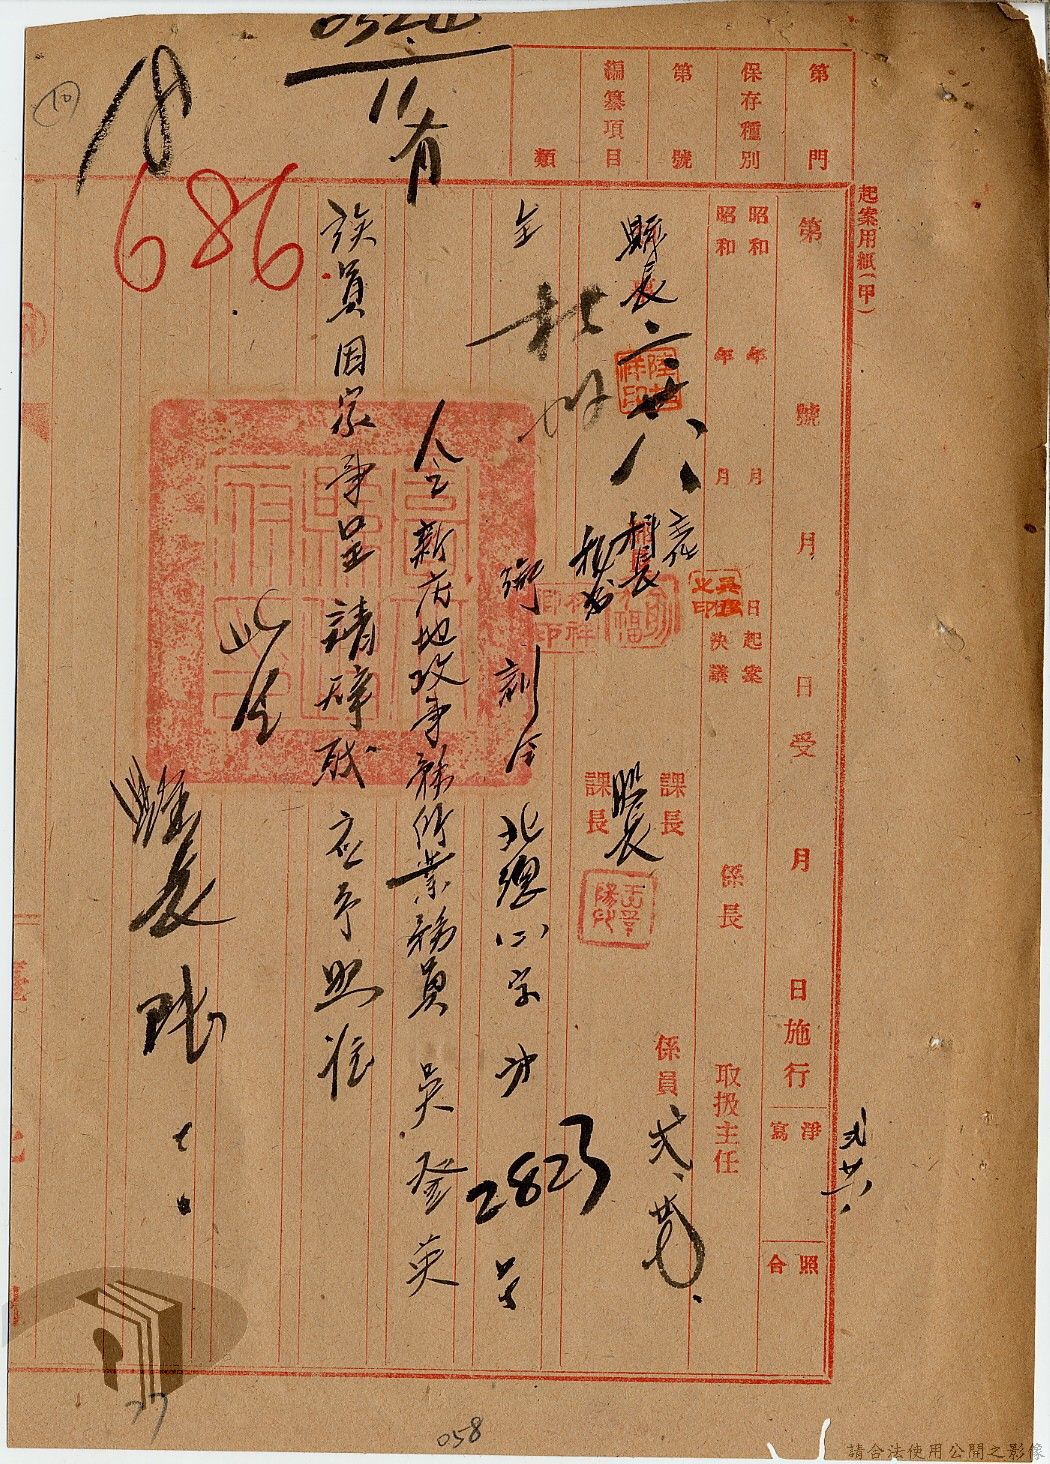 起案用紙(甲)
第 門
保存種別
第 號
編纂項目
類
11 有
10
686
第 號 月 日受 月 日施行
淨寫
照合
昭和 年 月 日起案
昭和 年 月 決議
係長
取扱主任
課長
課長
係員
縣長
二 廿八
股長
全 衔 訓令 北總(二)字 第 2823 号
令新店地政事務所業務員 吳登英
該員因家事呈請辭職应予照准
此令
縣長 陸
058
請合法使用公開之影像